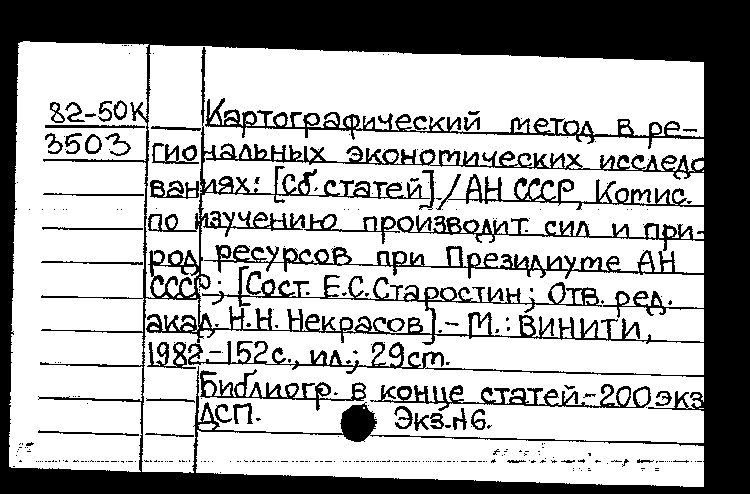 82-50К
3503
Картографический метод в ре-
гиональных экономических исследо
ваниях: [Сб. статей] / АН СССР, Комис.
по изучению производит. сил и при-
род. ресурсов при Президиуме АН
СССР; [Сост. Е.С.Старостин; Отв. ред.
акад. Н.Н. Некрасов]. - М.: ВИНИТИ,
1982.-152с., ил.; 29см.
Библиогр. в конце статей.-200экз
ДСП. Экз.№6.